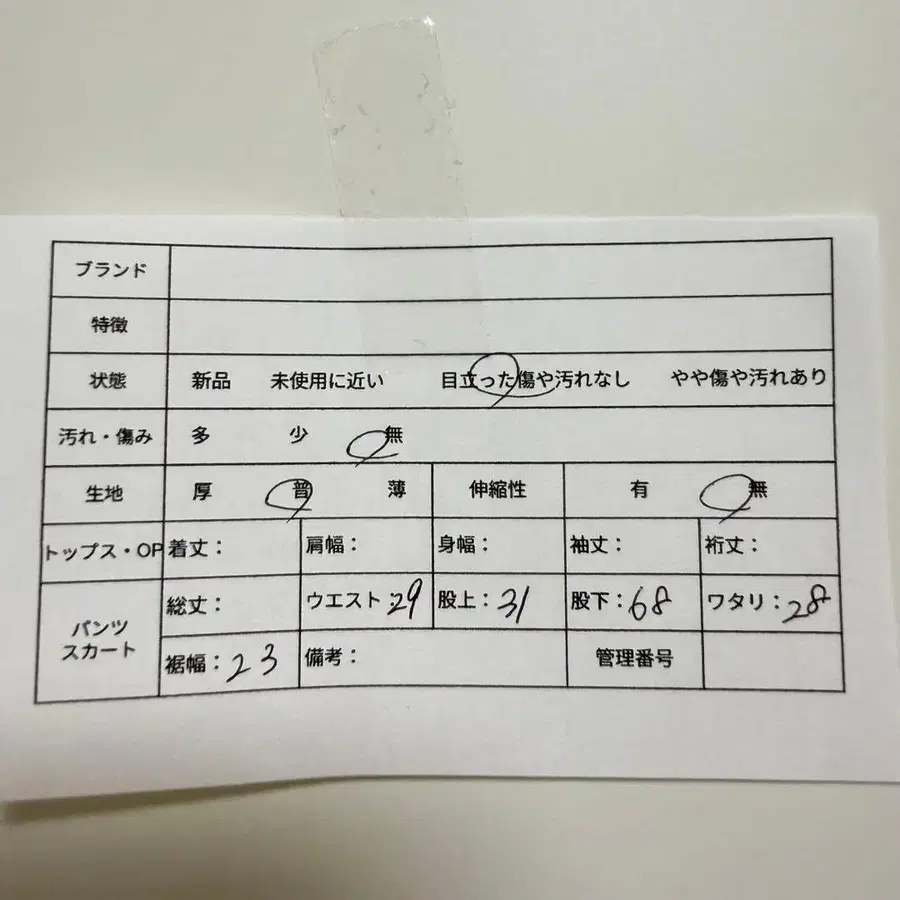 ブランド
特徴
状態 新品 未使用に近い 目立った傷や汚れなし やや傷や汚れあり
汚れ・傷み 多 少 無
生地 厚 普 薄 伸縮性 有 無
トップス・OP 着丈： 肩幅： 身幅： 袖丈： 裄丈：
パンツ
スカート
総丈： ウエスト：29 股上：31 股下：68 ワタリ：28
裾幅：23 備考： 管理番号